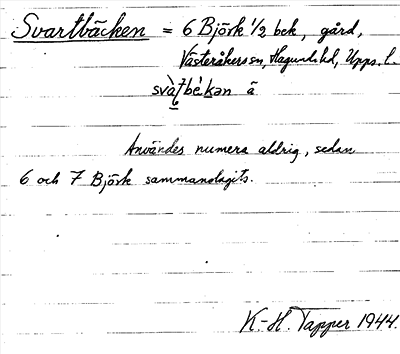 Svartbäcken = 6 Björk 1/2 bek, gård,
Västeråkers sn, Hagunda hd, Upps. l.
Användes numera aldrig, sedan
6 och 7 Björk sammanslagits.
K.-H. Tapper 1944.